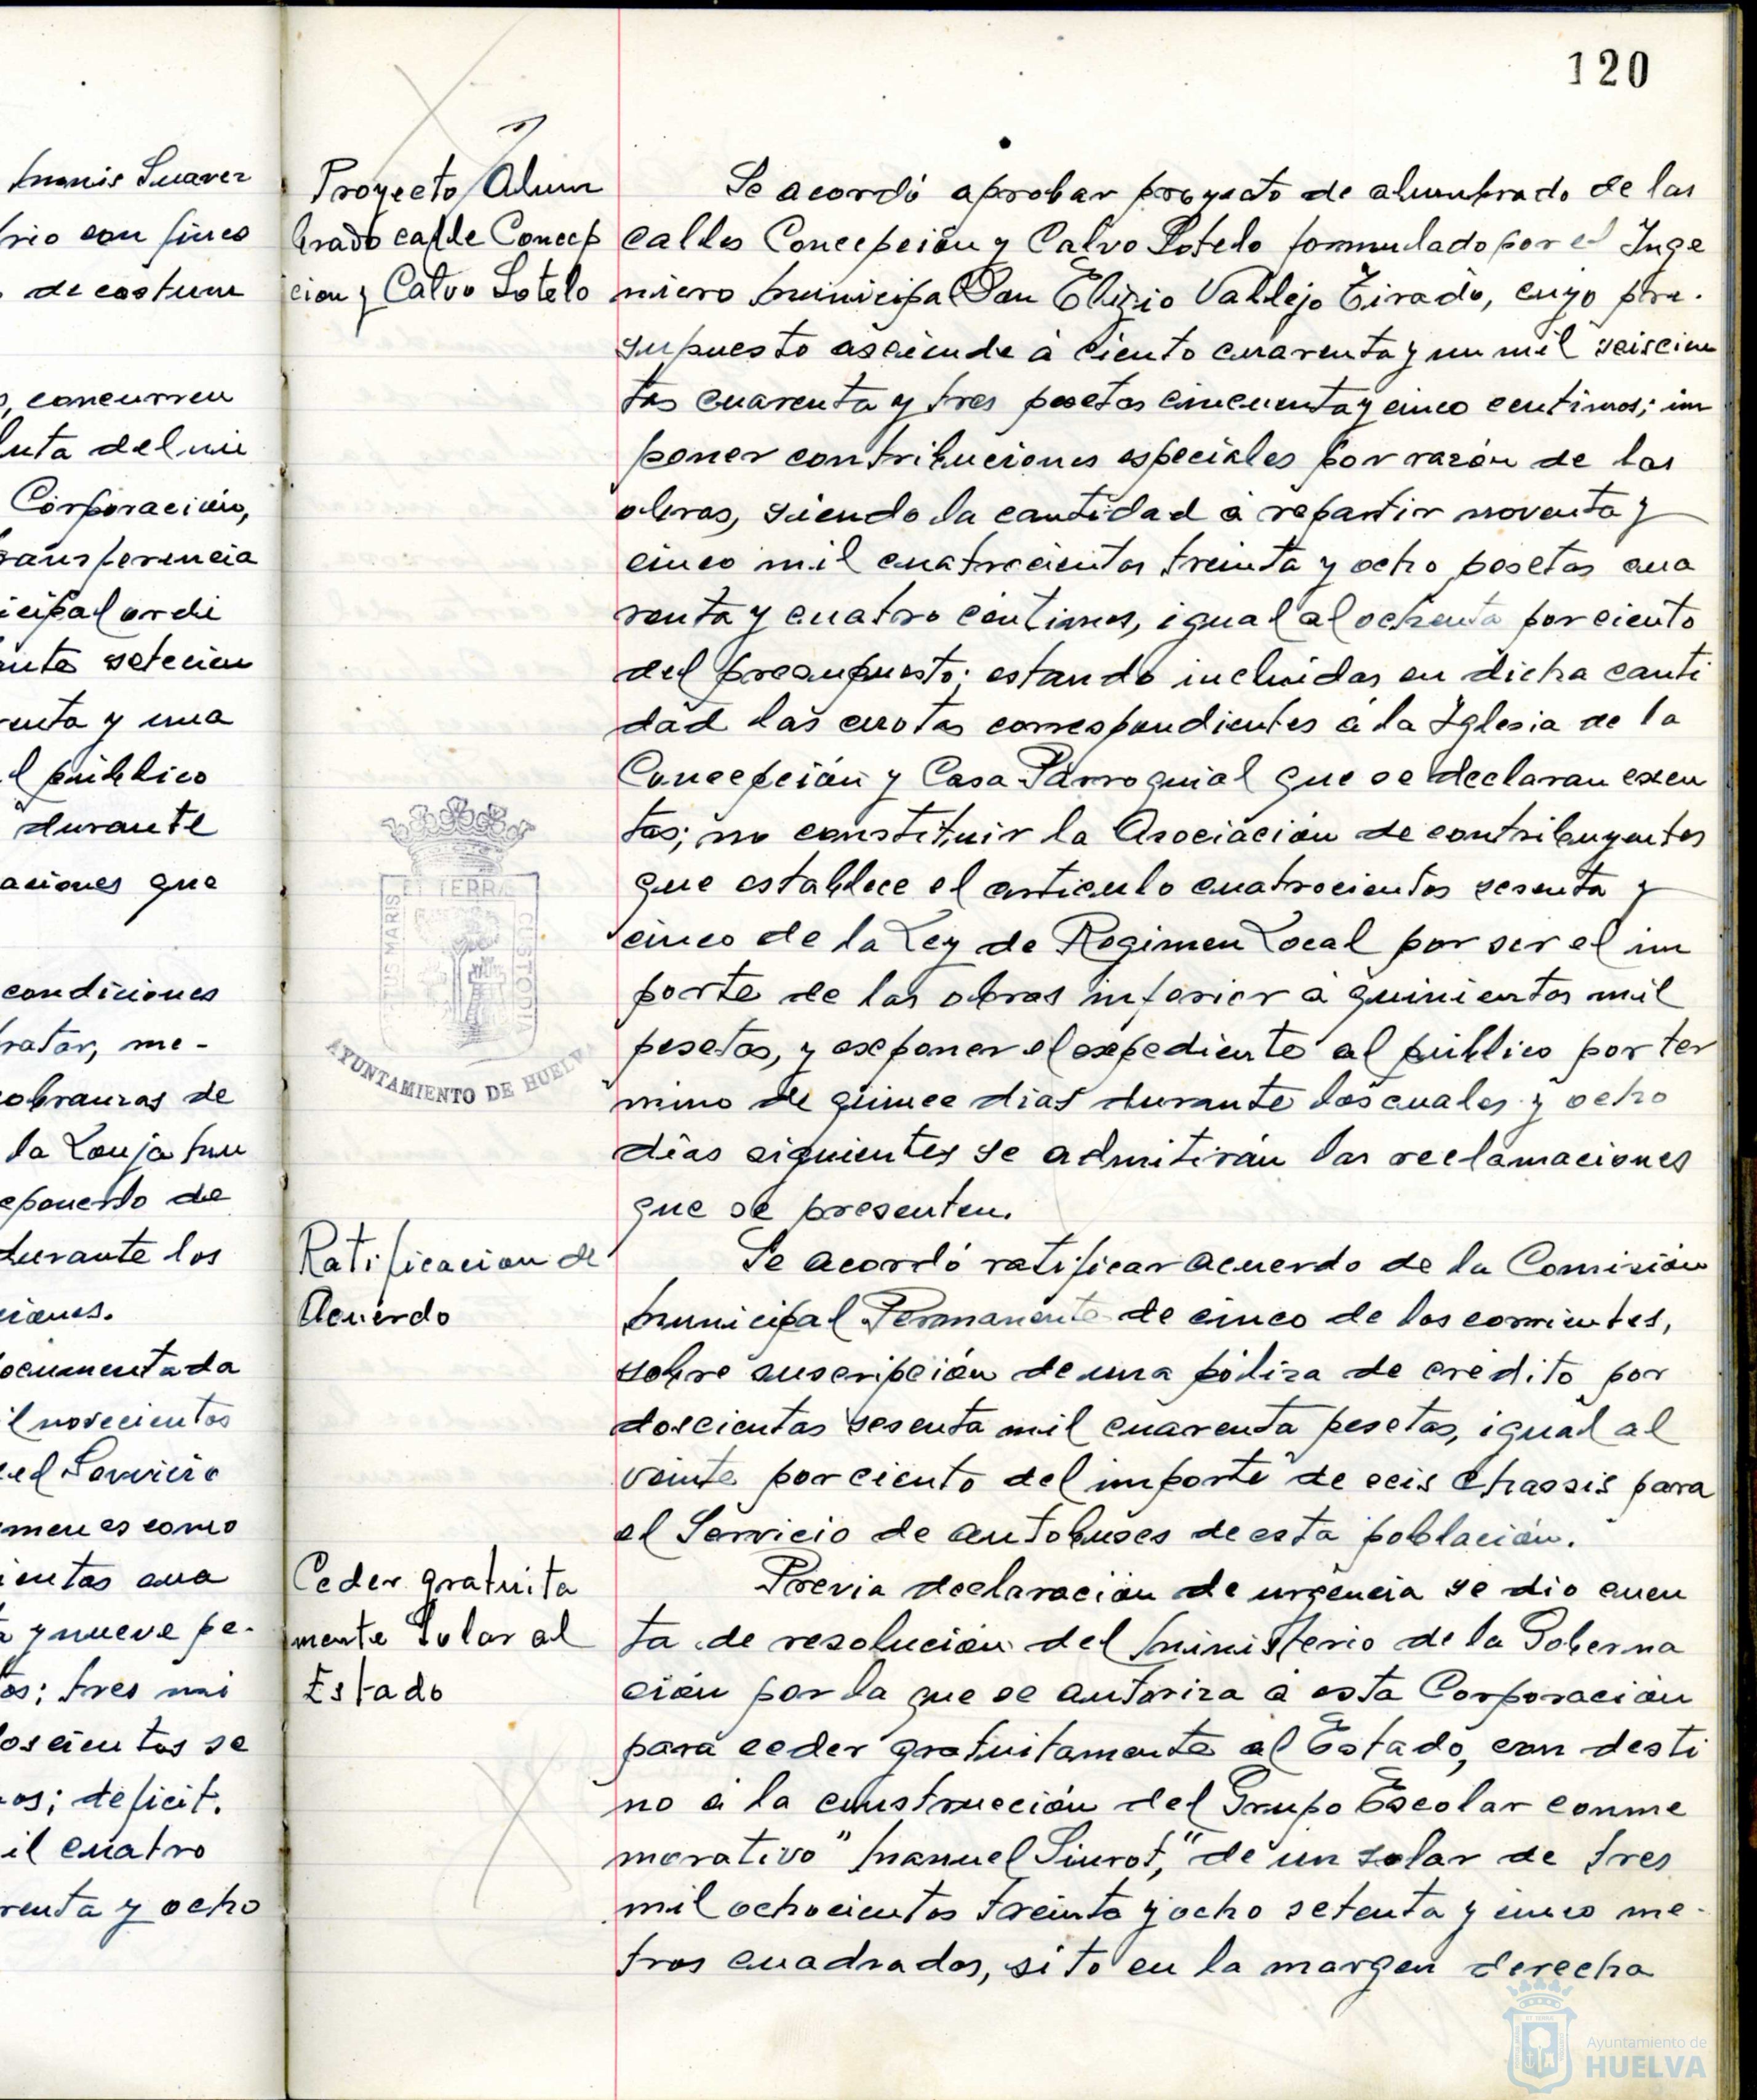 120
humis Suarez
rio con fines
de costum
concurren
luta del nu
Corporación,
ransferencia
icipal ordi
nta setecien
enta y una
l público
durante
aciones que
condiciones
ratar, me-
obranzas de
la Lonja mu
eponerlo de
durante los
ciones.
ocumentada
il novecientos
el Servicio
men es como
ientas cua
y nueve pe-
os; tres mi
oscientos se
os; deficit.
il cuatro
renta y ocho
Proyecto Alum
brado calle Concep
cion y Calvo Sotelo
Se acordó aprobar proyecto de alumbrado de las
calles Concepción y Calvo Sotelo formulado por el Inge
niero municipal Don Eligio Vallejo Tirado, cuyo pre-
supuesto asciende á ciento cuarenta y un mil seiscien
tas cuarenta y tres pesetas cincuenta y cinco centimos; im
poner contribuciones especiales por razón de las
obras, siendo la cantidad á repartir noventa y
cinco mil cuatrocientas treinta y ocho pesetas cua
renta y cuatro céntimos, igual al ochenta por ciento
del presupuesto; estando incluidas en dicha canti
dad las cuotas correspondientes á la Iglesia de la
Concepción y Casa Parroquial que se declaran exen
tas; no constituir la Asociación de contribuyentes
que establece el articulo cuatrocientos sesenta y
cinco de la Ley de Regimen Local por ser el im
porte de las obras inferior á quinientas mil
pesetas, y exponer el expediente al público por ter
mino de quince dias durante los cuales y ocho
dias siguientes se admitirán las reclamaciones
que se presenten.
Ratificacion de
Acuerdo
Se acordó ratificar acuerdo de la Comisión
municipal Permanente de cinco de los corrientes,
sobre suscripción de una póliza de crédito por
doscientas sesenta mil cuarenta pesetas, igual al
veinte por ciento del importe de seis chassis para
el Servicio de autobuses de esta población.
Ceder gratuita
mente Solar al
Estado
Previa declaración de urgencia se dio cuen
ta de resolución del ministerio de la Goberna
ción por la que se autoriza á esta Corporación
para ceder gratuitamente al Estado, con desti
no á la construcción del Grupo Escolar conme
morativo "Manuel Siurot," de un solar de tres
mil ochocientos treinta y ocho setenta y cinco me-
tros cuadrados, sito en la margen derecha
ET TERRA
TUS MARIS
CUSTODIA
AYUNTAMIENTO DE HUELVA
Ayuntamiento de
HUELVA